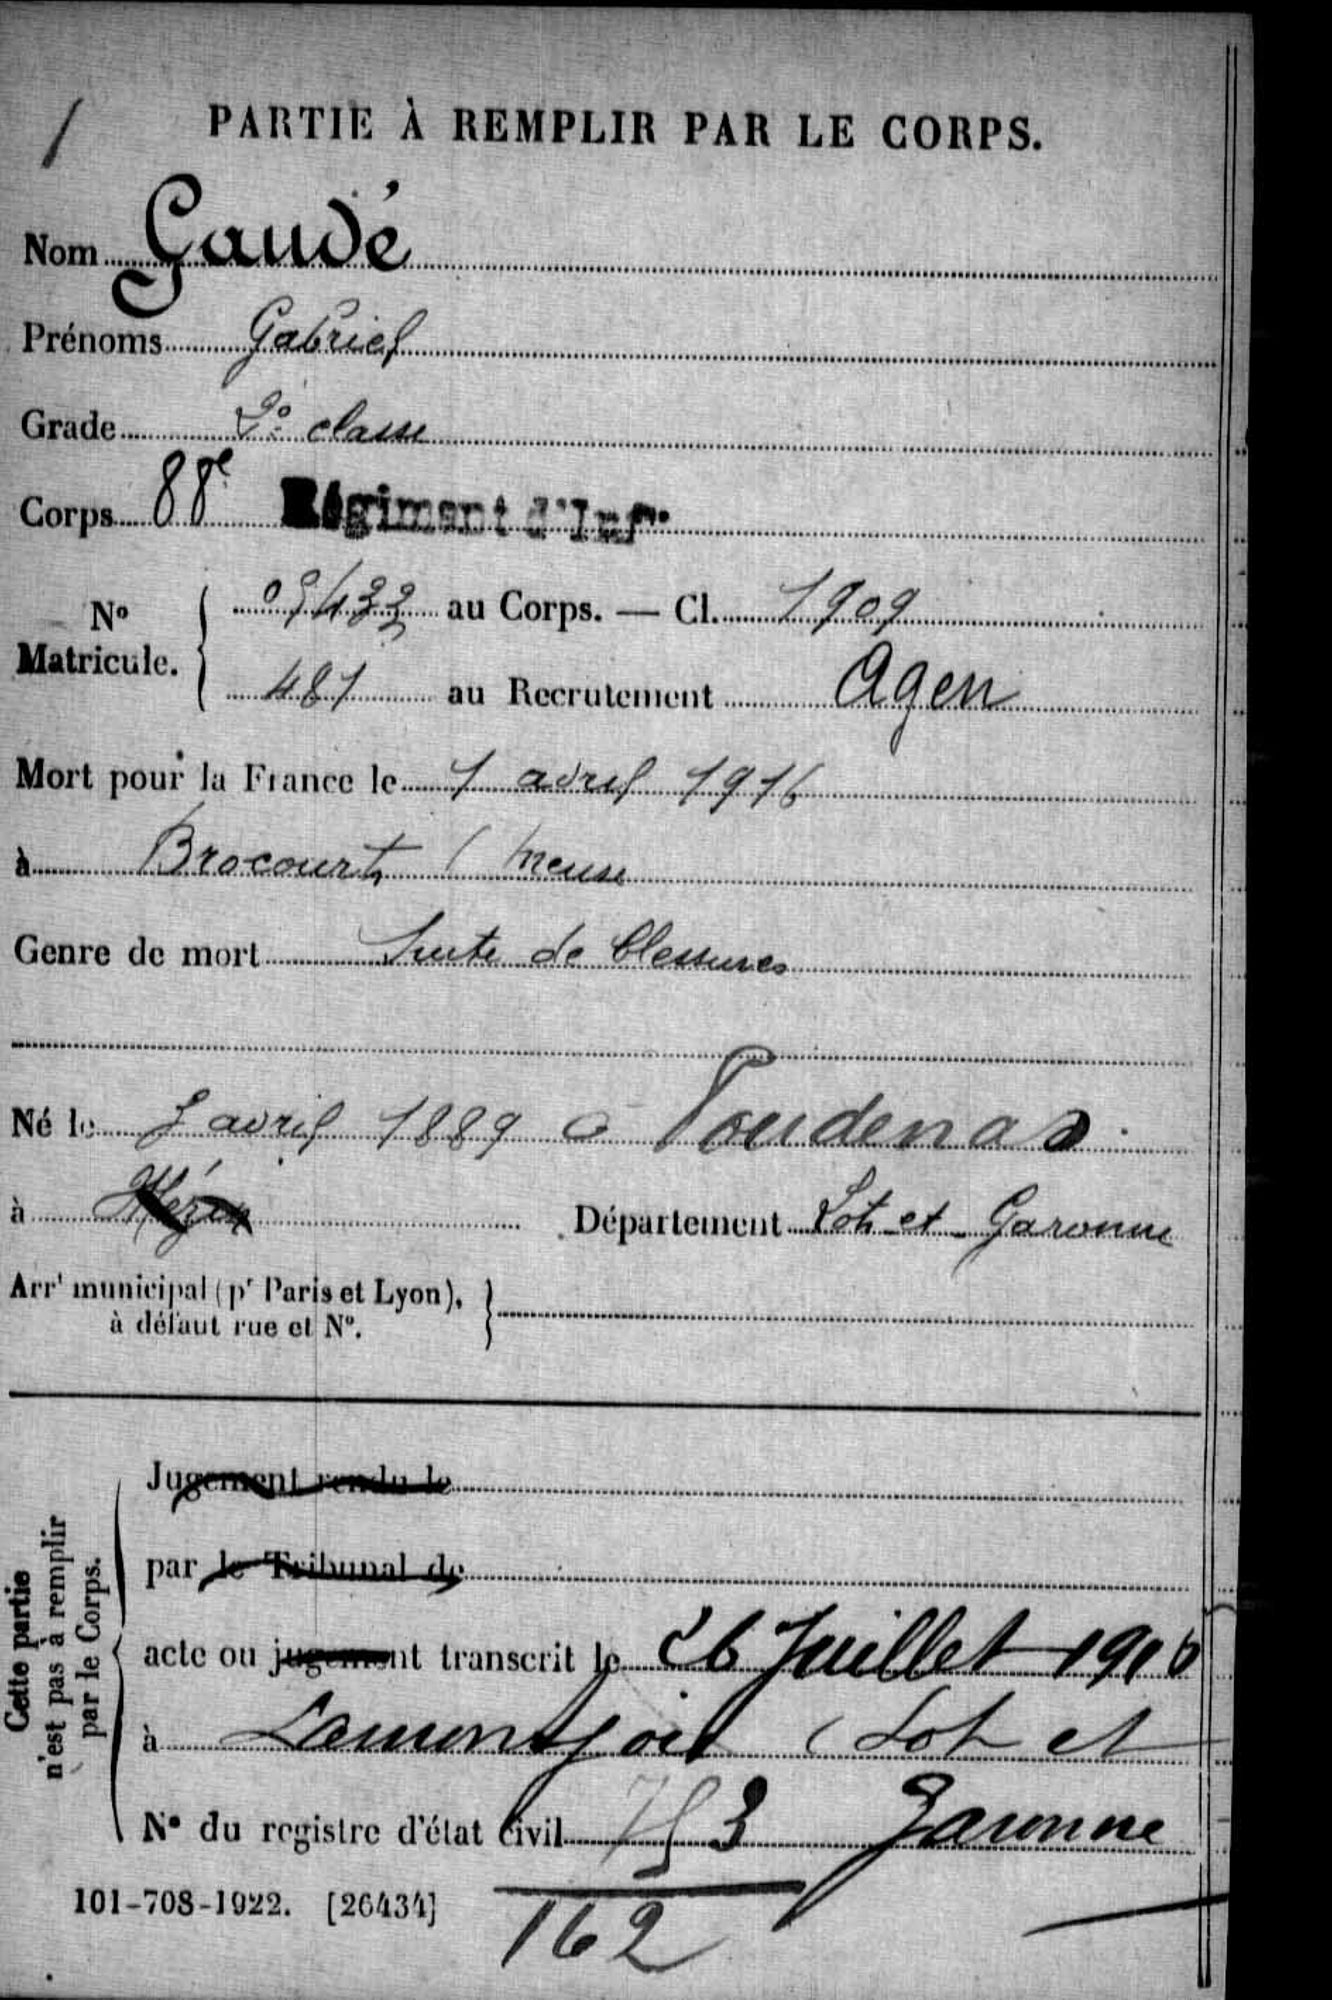 1
PARTIE À REMPLIR PAR LE CORPS.
Nom Gaudé
Prénoms Gabriel
Grade 2e classe
Corps 88e Régiment d'Inf.
No Matricule.
au Corps. — Cl. 1909
481 au Recrutement Agen
Mort pour la France le 1 avril 1916
à Brocourt (Meuse
Genre de mort Suite de blessures
Né le avril 1889 à Poudenas
à Mézin Département Lot et Garonne
Arrt municipal (pr Paris et Lyon),
à défaut rue et No.
Cette partie
n'est pas à remplir
par le Corps.
Jugement rendu le
par le Tribunal de
acte ou jugement transcrit le 26 Juillet 1916
à Lamontjoie (Lot et
No du registre d'état civil Garonne
101-708-1922. [26434]
162